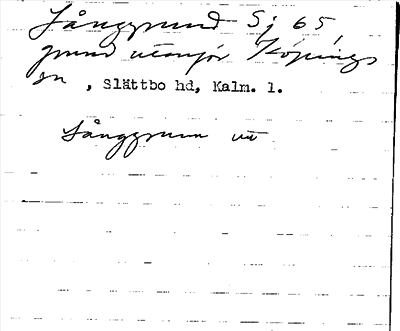 Långgrund Sj 65,
grund utanför Köpings
sn , Slättbo hd, Kalm. l.
Långgrunn